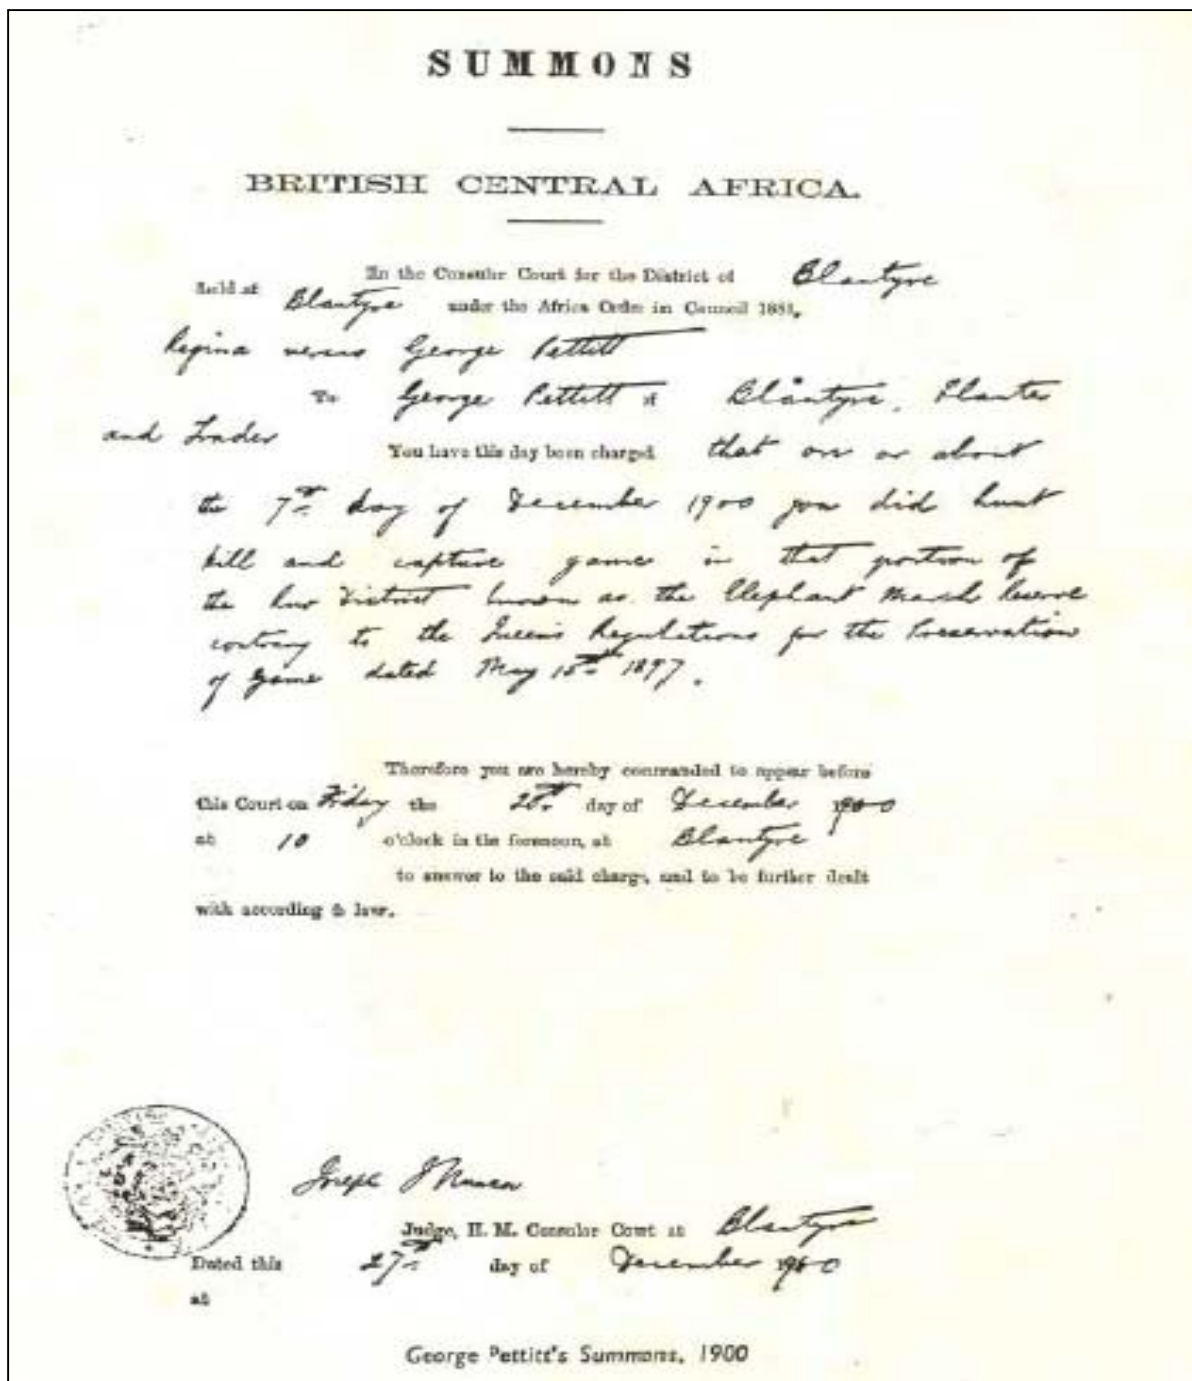 SUMMONS
BRITISH CENTRAL AFRICA.
In the Consular Court for the District of Blantyre
held at Blantyre under the Africa Order in Council 1889.
Regina versus George Pettitt
To George Pettitt of Blantyre, Planter
and Trader You have this day been charged that on or about
the 7th day of December 1900 you did hunt
kill and capture game in that portion of
the District known as the Elephant Marsh Reserve
contrary to the Queen's Regulations for the Preservation
of Game dated May 15th 1897.
Therefore you are hereby commanded to appear before
this Court on Friday the 28th day of December 1900
at 10 o'clock in the forenoon, at Blantyre
to answer to the said charge, and to be further dealt
with according to law.
Joseph
Judge, H. M. Consular Court at Blantyre
Dated this 27th day of December 1900
at
George Pettitt's Summons, 1900